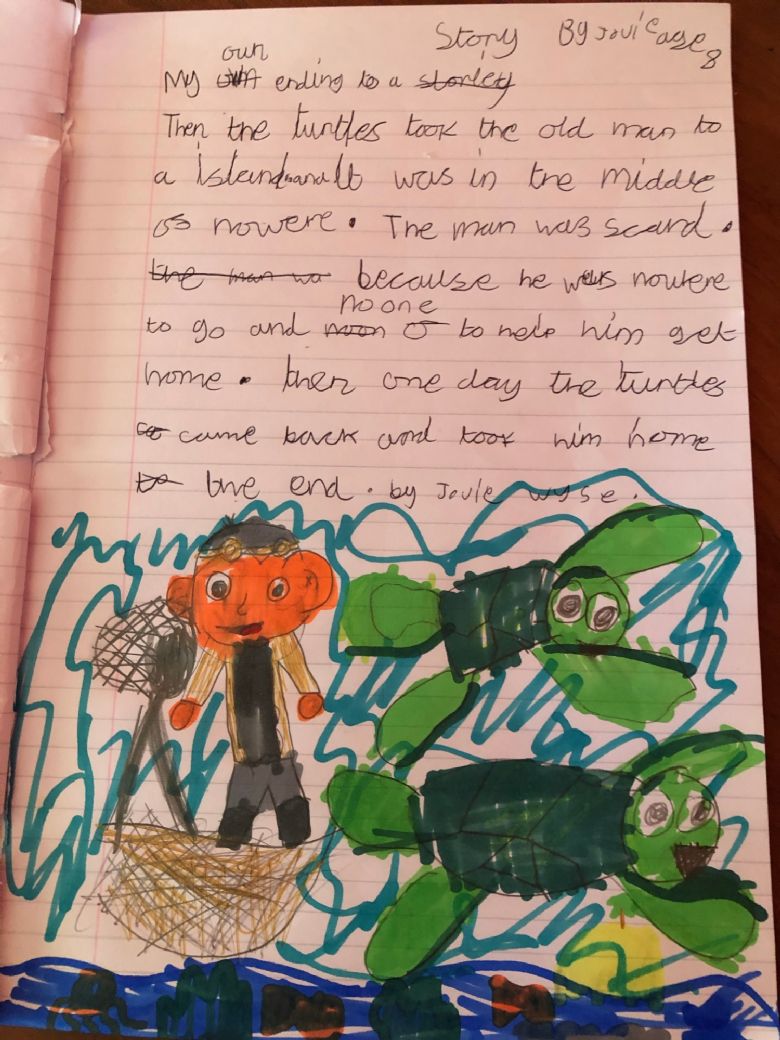 Story By Jovie age 8
own
My own ending to a storiey
Then the turtles took the old man to
a island and It was in the middle
os nowere. The man was scard.
the man wa because he was nowere
no one
to go and noon to help him get
home. then one day the turtles
came back and took him home
the end. by Jovie wyse.